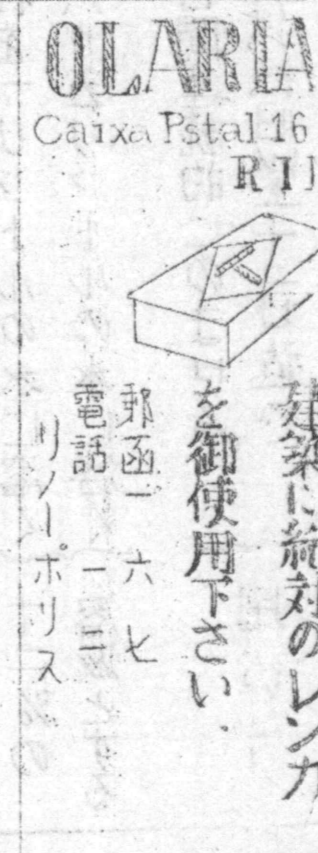 OLARIA
Caixa Pstal 16
RI
建築に絶対のレンガ
を御使用下さい.
郵函一六七
電話 一二
リノーポリス